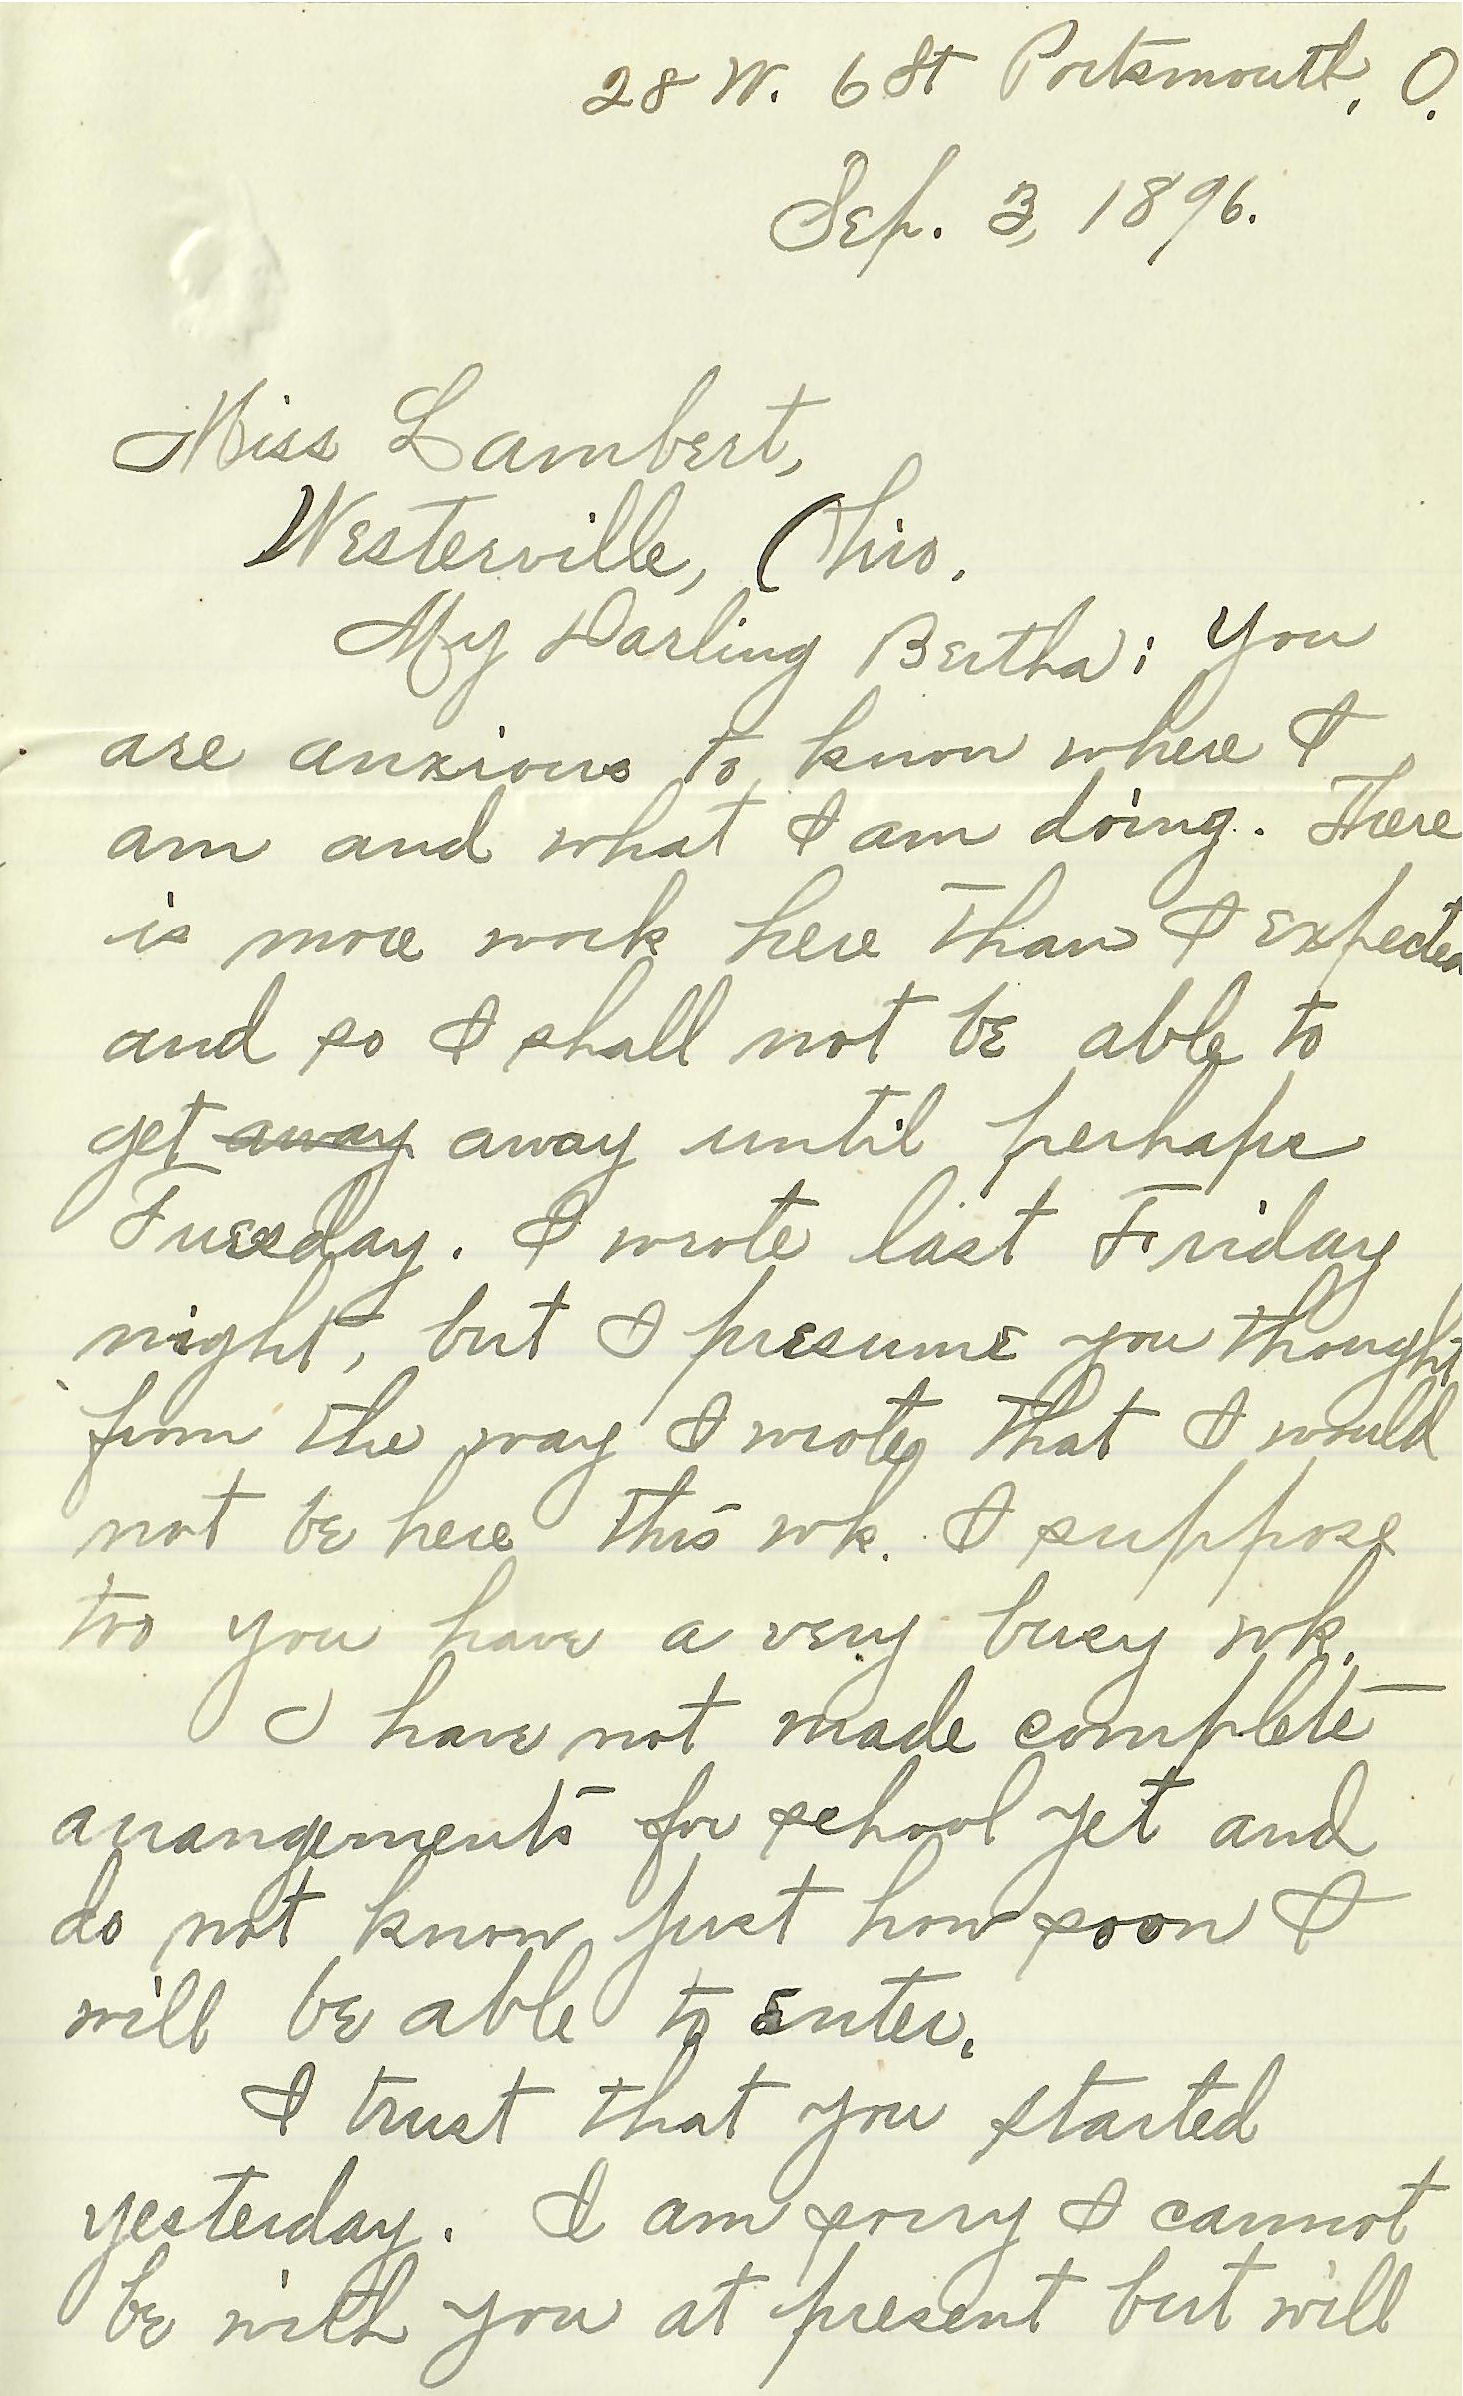 28 W. 6 St Portsmouth, O.
Sep. 3, 1896.
Miss Lambert,
Westerville, Ohio.
My Darling Bertha: You
are anxious to know where I
am and what I am doing. There
is more work here than I expected
and so I shall not be able to
get away away until perhaps
Tuesday. I wrote last Friday
night, but I presume you thought
from the way I wrote, that I would
not be here this wk. I suppose
too you have a very busy wk.
I have not made complete
arrangements for school yet and
do not know just how soon I
will be able to enter.
I trust that you started
yesterday. I am sorry I cannot
be with you at present but will